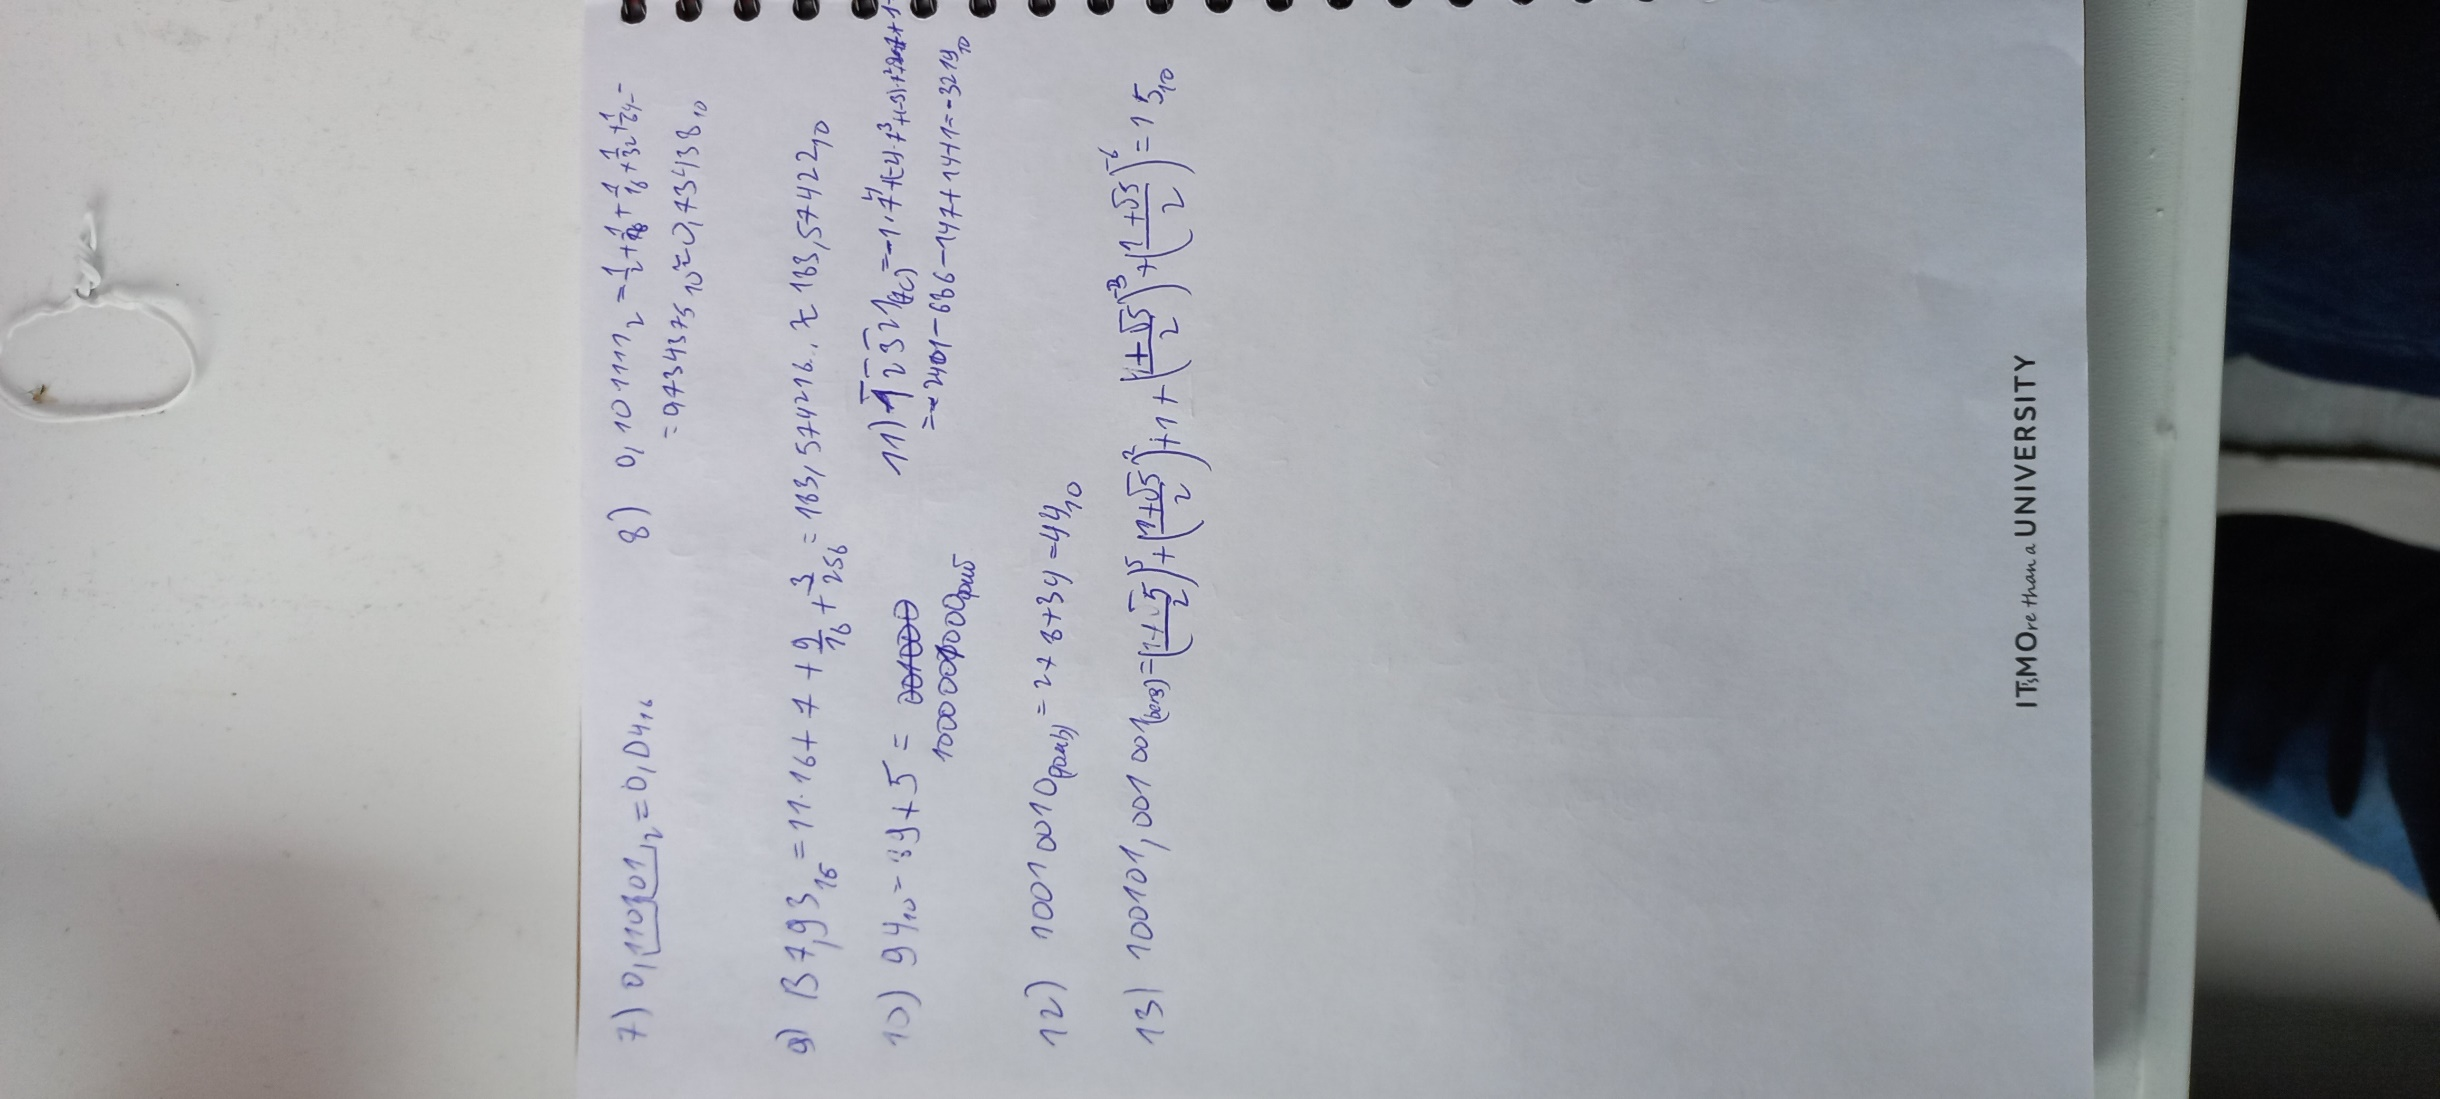 7) 0,110101₂ = 0,D4₁₆
8) 0,101111₂ = 1/2 + 1/8 + 1/16 + 1/32 + 1/64 =
= 0,734375₁₀ ≈ 0,73438₁₀
9) B7,93₁₆ = 11·16 + 7 + 9/16 + 3/256 = 183,574216.. ≈ 183,57422₁₀
10) 94₁₀ = 89 + 5 =
1000001000фиб
11) 1̅ 2̅ 3̅ 2 1(7C) = -1·7⁴ + (-4·7³ + (-3)·7² + 2·7 + 1·
= -2401 - 686 - 147 + 14 + 1 = -3219₁₀
12) 10010010(фиб) = 2 + 8 + 34 = 44₁₀
13) 100101,001001(берг) = ((1+√5)/2)⁵ + ((1+√5)/2)² + 1 + ((1+√5)/2)⁻³ + ((1+√5)/2)⁻⁶ = 15₁₀
ITsMOre than a UNIVERSITY